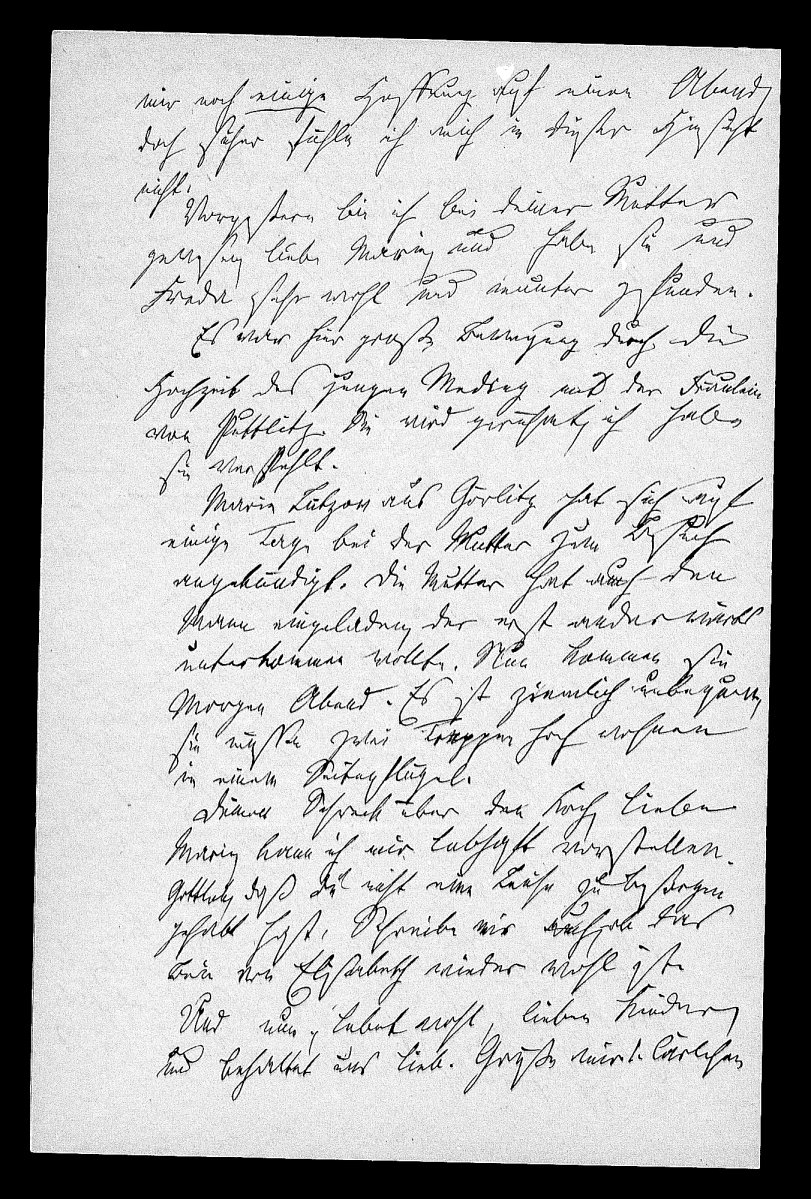 mir noch einige Hoffnung auf einen Abend,
doch sicher fühle ich mich in dieser Hinsicht
nicht.
Vorgestern bin ich bei deiner Mutter
gewesen, liebe Marie, und habe sie und
Freda sehr wohl und munter gefunden.
Es war hier große Bewegung durch die
Hochzeit des jungen Meding mit der Fräulein
von Puttlitz. Sie wird gerühmt, ich habe
sie verfehlt.
Marie Lützow aus Görlitz hat sich auf
einige Tage bei der Mutter zum Besuch
angekündigt. Die Mutter hat auch den
Mann eingeladen, der erst anderwärts
unterkommen wollte. Nun kommen sie
Morgen Abend. Es ist ziemlich unbequem,
sie müssen zwei Treppen hoch wohnen
in einem Seitenflügel.
Deinen Schreck über den Koch, liebe
Marie, kann ich mir lebhaft vorstellen.
Gottlob, daß du nicht eine Leiche zu besorgen
gehabt hast. Schreibe mir auch, ob das
Bein von Elisabeth wieder wohl ist.
Und nun, lebet wohl, lieben Kinder,
und behaltet uns lieb. Grüße mir Carlchen